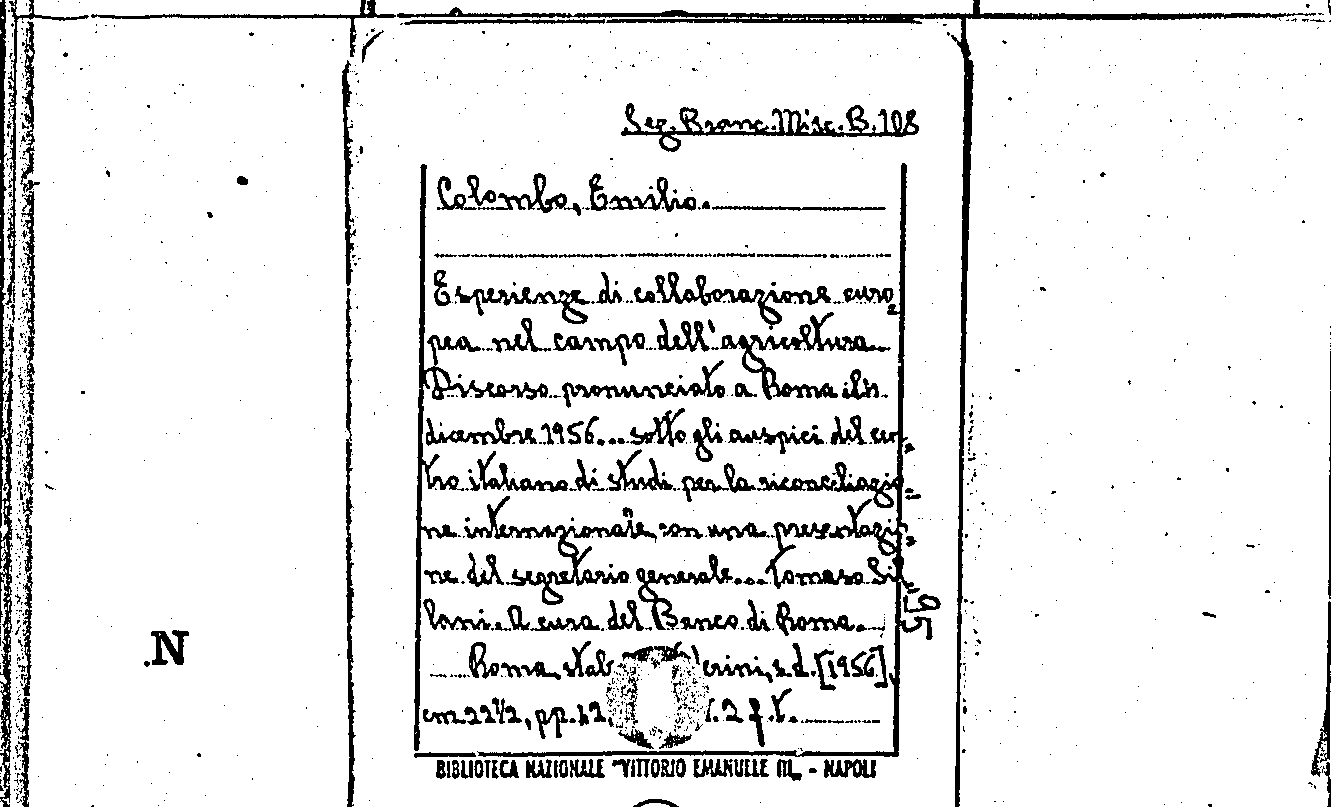 Sez. Branc. Misc. B. 108
Colombo, Emilio.
Esperienze di collaborazione euro
pea nel campo dell'agricoltura.
Discorso pronunciato a Roma il
dicembre 1956... sotto gli auspici del cen-
tro italiano di studi per la riconciliazio-
ne internazionale, con una presentazio-
ne del segretario generale... Tomaso Sil-
lani. A cura del Banco di Roma.
95
Roma, stab. s.d. [1956],
cm. 22 1/2, pp. 2 f. t.
.N
BIBLIOTECA NAZIONALE "VITTORIO EMANUELE III" - NAPOLI